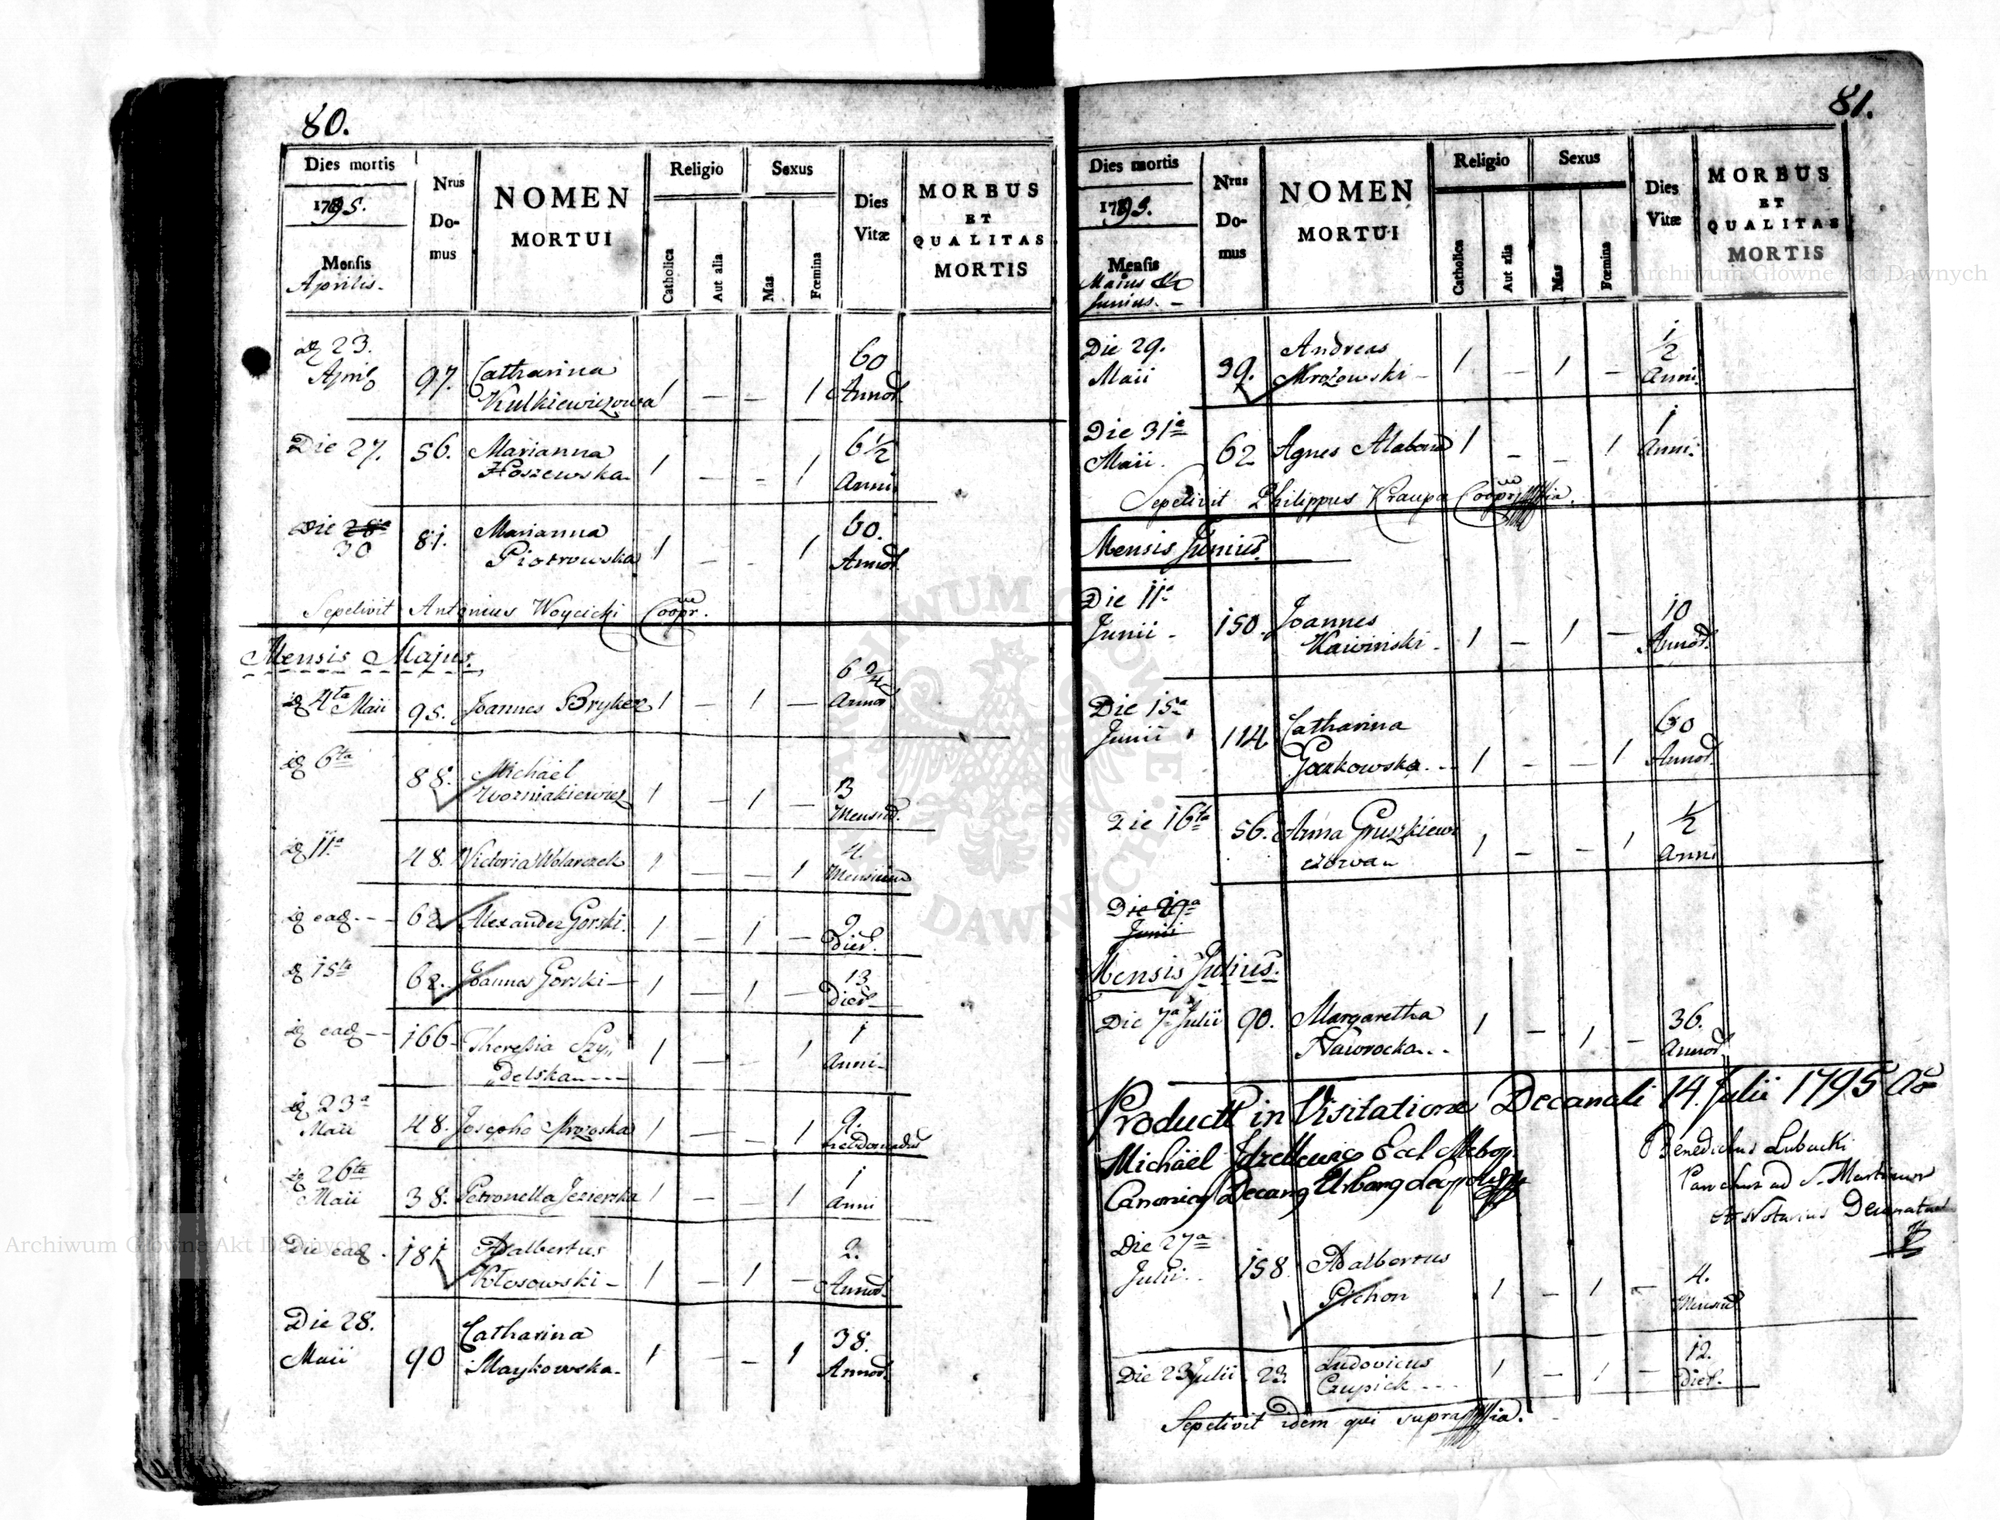 80.
Dies mortis
1795.
Mensis
Aprilis.
Nrus
Do-
mus
NOMEN
MORTUI
Religio
Catholica
Aut alia
Sexus
Mas
Fœmina
Dies
Vitæ
MORBUS
ET
QUALITAS
MORTIS
23.
April
97.
Catharina
Kulkiewiczowa
1 – – 1
60
Annor.
Die 27.
56.
Marianna
Hoszewska
1 – – 1
6 1/2
Anni
Die 28a
30
81.
Marianna
Piotrowska
1 – – 1
60.
Annor.
Sepelivit Antonius Woycicki Coopr.
Mensis Majus.
4ta Maii
95.
Joannes Bryker
1 – 1 –
6
Annor
6ta
88.
Michael
Wozniakiewicz
1 – 1 –
3
Mensiu.
11a
48.
Victoria Wolarczek
1 – – 1
4.
Mensium
ead
62
Alexander Gorski.
1 – 1 –
9.
Dier.
15ta
62.
Joannes Gorski
1 – 1 –
13
Dier.
ead
166
Theressia Szy
delska
1 – – 1
1
Anni
23a
Maii
48.
Josepha Mrozoska
1 – – 1
9.
hebdomadum
26ta
Maii
38.
Petronella Jezierska
1 – – 1
1
Anni
Die ead
181
Adalbertus
Kłosowski
1 – 1 –
2.
Annor.
Die 28.
Maii
90
Catharina
Maykowska
1 – – 1
38.
Annor.
81.
Dies mortis
1795.
Mensis
Maius &
Junius.
Nrus
Do-
mus
NOMEN
MORTUI
Religio
Catholica
Aut alia
Sexus
Mas
Fœmina
Dies
Vitæ
MORBUS
ET
QUALITAS
MORTIS
Die 29.
Maii
39.
Andreas
Mrozowski
1 – 1 –
1/2
Anni
Die 31a
Maii.
62
Agnes Alabord
1 – – 1
1
Anni.
Sepelivit Philippus Kraupa Coopr
Mensis Junius.
Die 11a
Junii
150.
Joannes
Kawinski
1 – 1 –
10
Annor.
Die 15a
Junii
114
Catharina
Gorkowska
1 – – 1
60
Annor.
Die 16ta
56.
Anna Gruszkiew
czowa
1 – – 1
1/2
Anni
Die 29a
Junii
Mensis Julius.
Die 7a Julii
90.
Margaretha
Nawrocka
1 – 1 –
36.
Annor
Product in Visitatione Decanali 14. Julii 1795 Ao
Michaël Eccl Metrop.
Canonicg Decang Urbang
Benedictus Lubucki
Parochus ad S. Martinum
et Notarius Decanatus
Die 27a
Julii
158.
Adalbertus
Pichon
1 – 1 –
4.
Mensiu
Die 23 Julii
23.
Ludovicus
Czupick
1 – 1 –
12.
Dier.
Sepelivit idem qui supra
ARCHIWUM GŁÓWNE AKT DAWNYCH
Archiwum Główne Akt Dawnych
Archiwum Główne Akt Dawnych